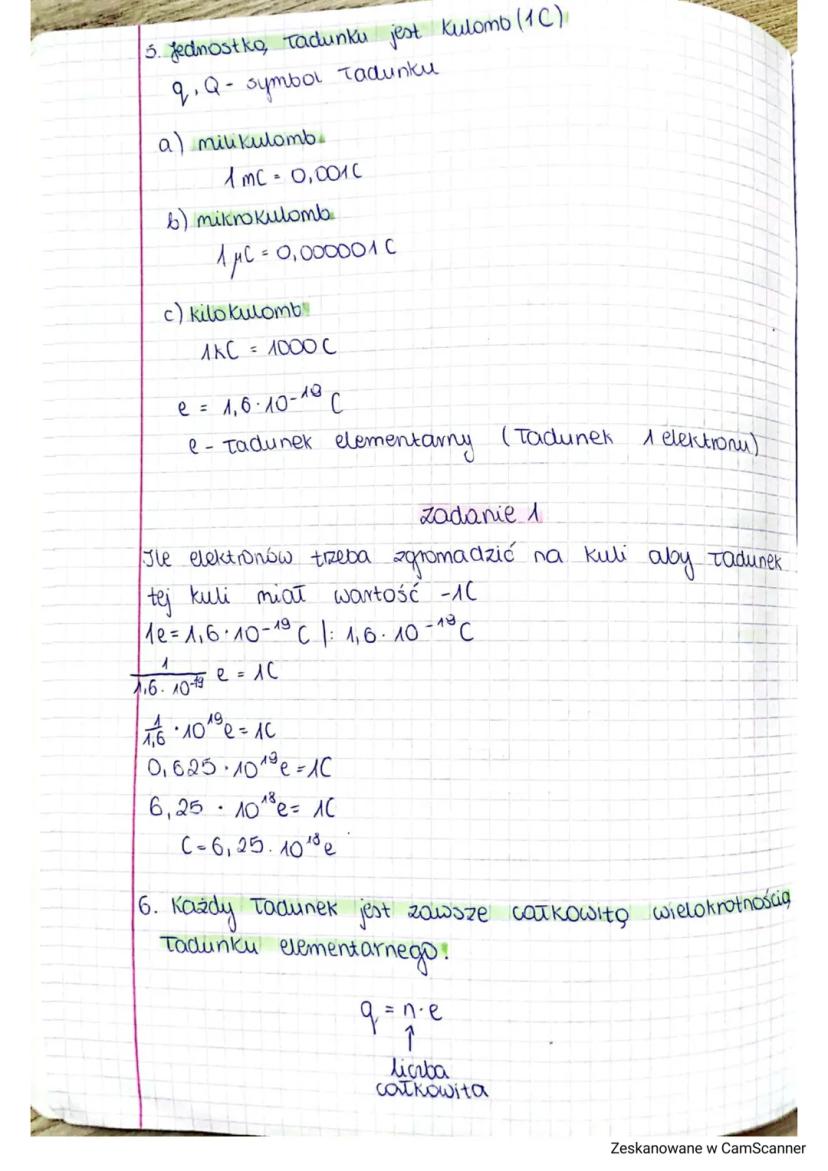 5. Jednostką ładunku jest kulomb (1C)
q, Q - symbol ładunku
a) milikulomb
1 mC = 0,001C
b) mikrokulomb
1 μC = 0,000001 C
c) kilokulomb
1kC = 1000 C
e = 1,6 · 10⁻¹⁹ C
e - ładunek elementarny (ładunek 1 elektronu)
zadanie 1
Ile elektronów trzeba zgromadzić na kuli aby ładunek
tej kuli miał wartość -1C
1e = 1,6 · 10⁻¹⁹ C |: 1,6 · 10⁻¹⁹ C
1/(1,6 · 10⁻¹⁹) e = 1C
1/1,6 · 10¹⁹ e = 1C
0,625 · 10¹⁹ e = 1C
6,25 · 10¹⁸ e = 1C
C = 6,25 · 10¹⁸ e
6. Każdy ładunek jest zawsze całkowitą wielokrotnością
ładunku elementarnego!
q = n · e
↑
liczba
całkowita
Zeskanowane w CamScanner